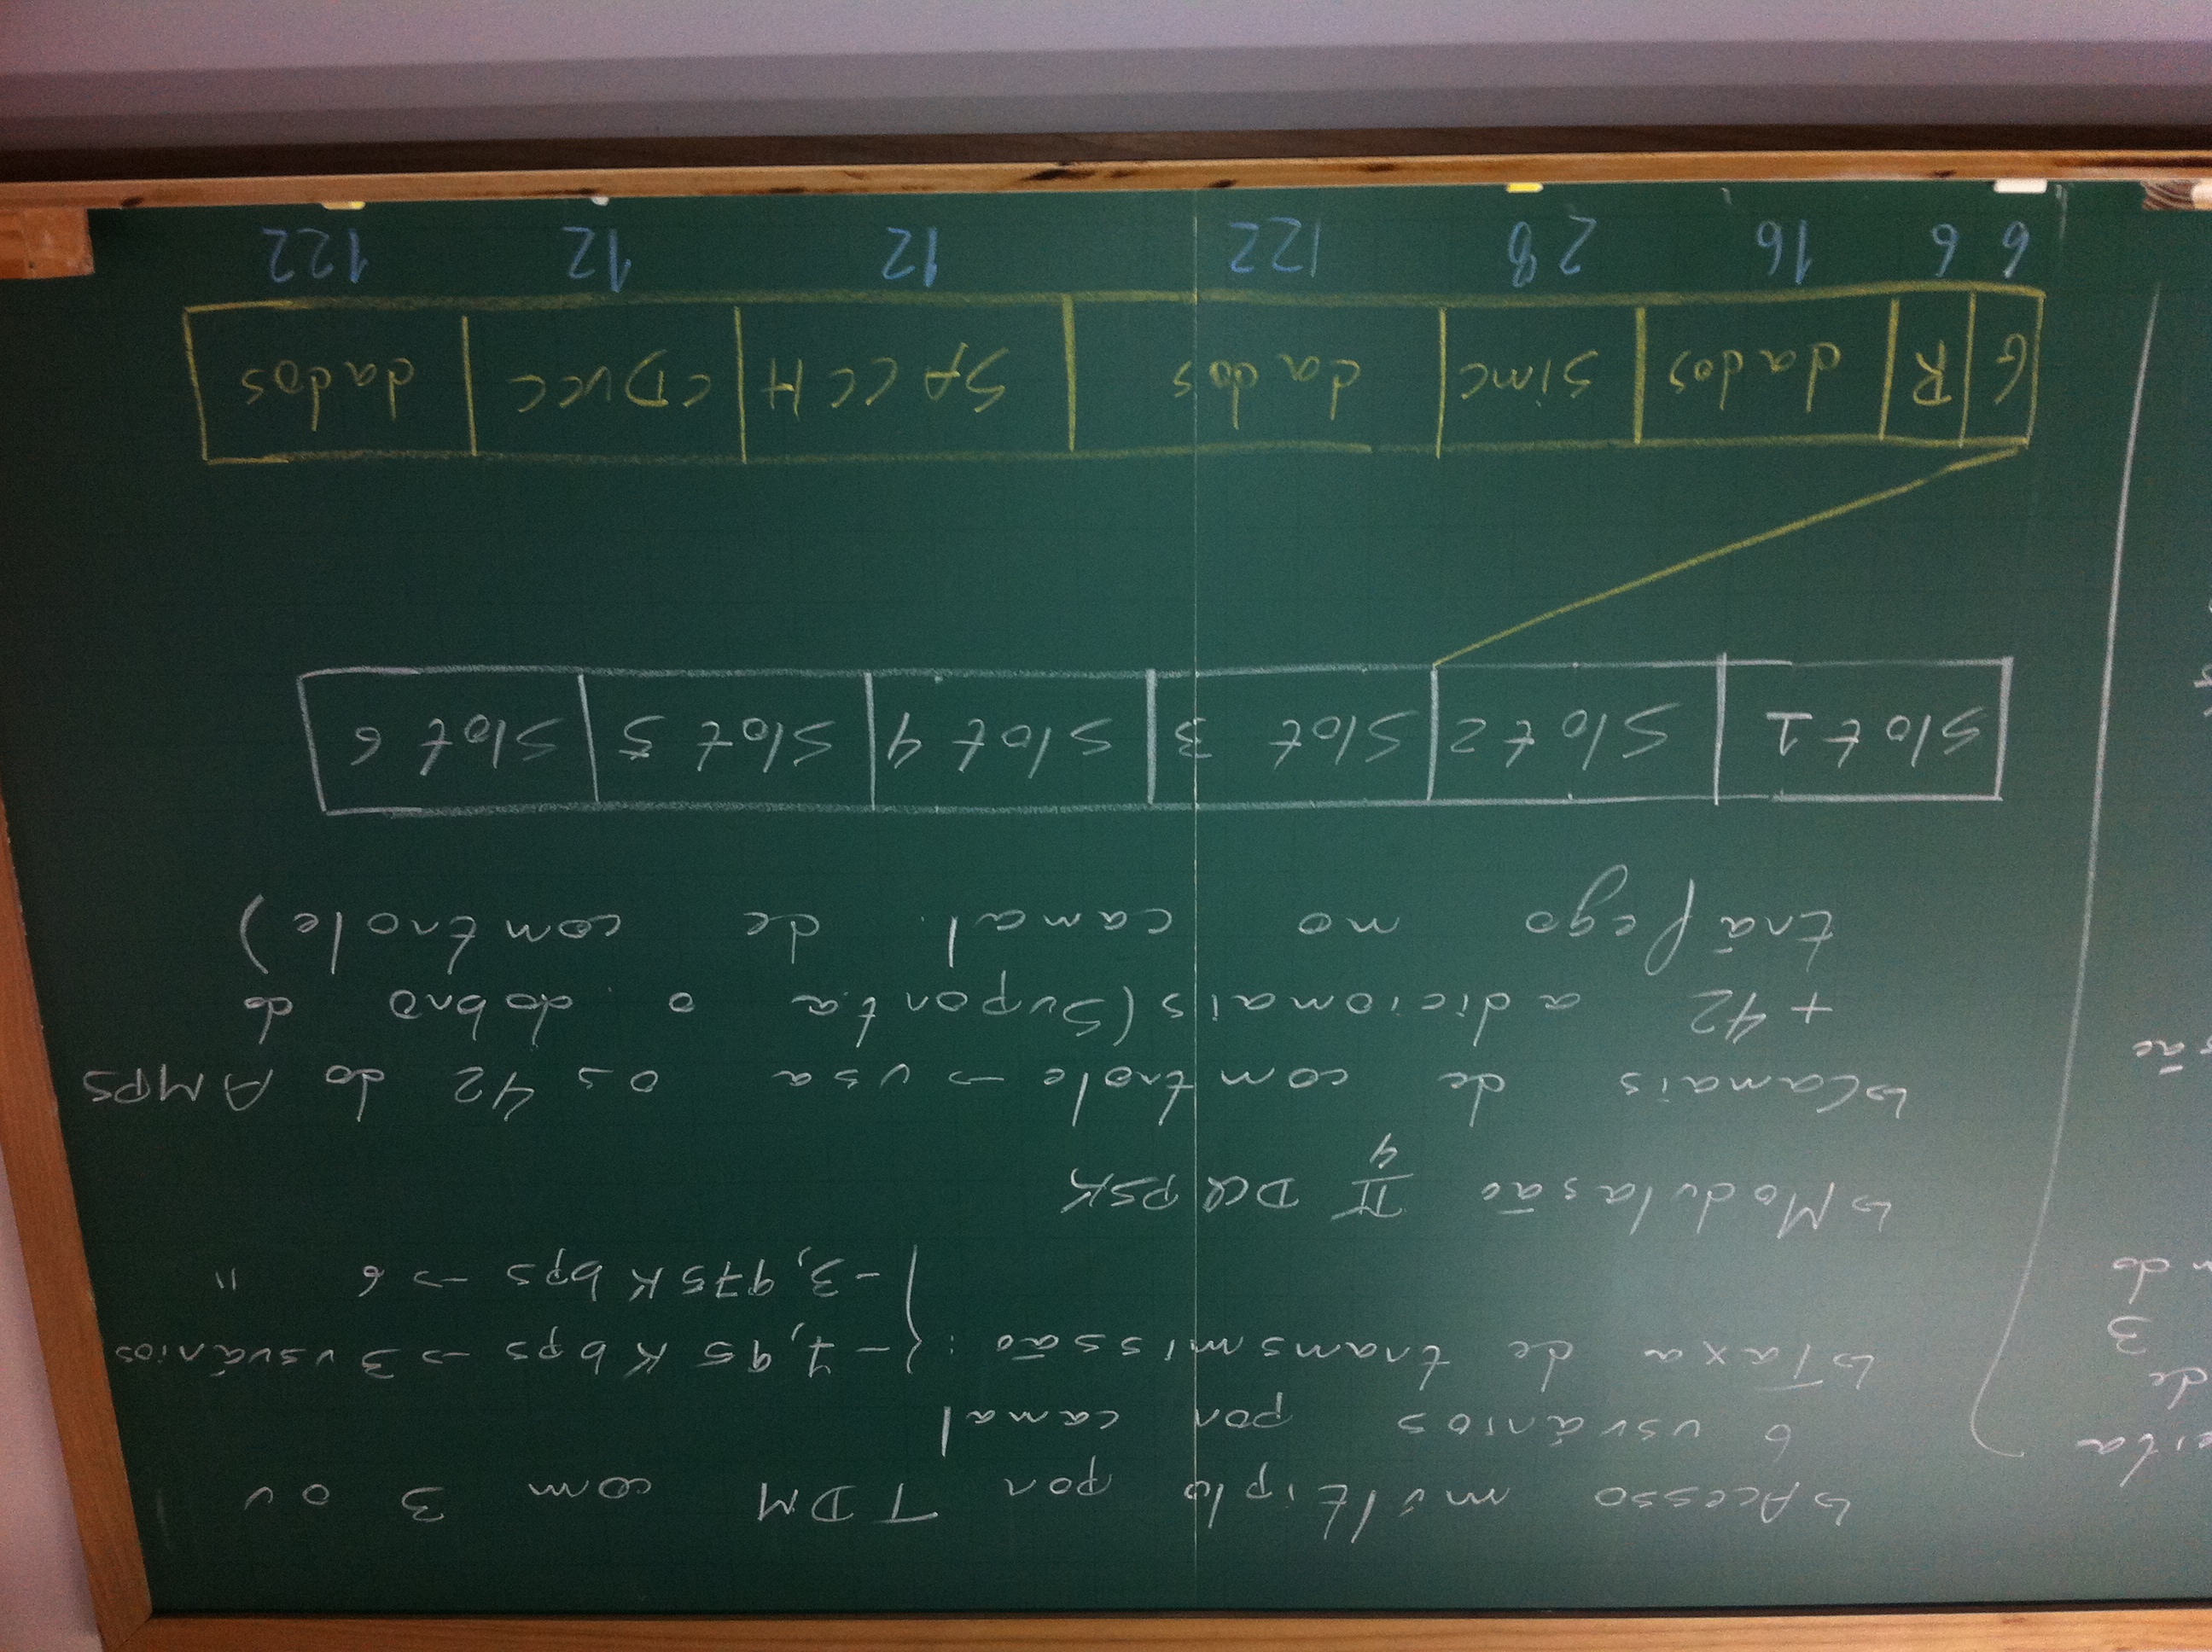 eita
de
3
ndo
são
↳ Acesso múltiplo por TDM com 3 ou
6 usuários por canal
↳ Taxa de transmissão : { - 7,95 Kbps → 3 usuários
- 3,975 Kbps → 6 "
↳ Modulasão π/4 DQPSK
↳ Canais de controle → usa os 42 do AMPS
+ 42 adicionais (Suporta o dobro do
tráfego no canal de controle)
Slot 1 Slot 2 Slot 3 Slot 4 Slot 5 Slot 6
G R dados sinc dados SACCH CDVCC dados
6 6 16 28 122 12 12 122